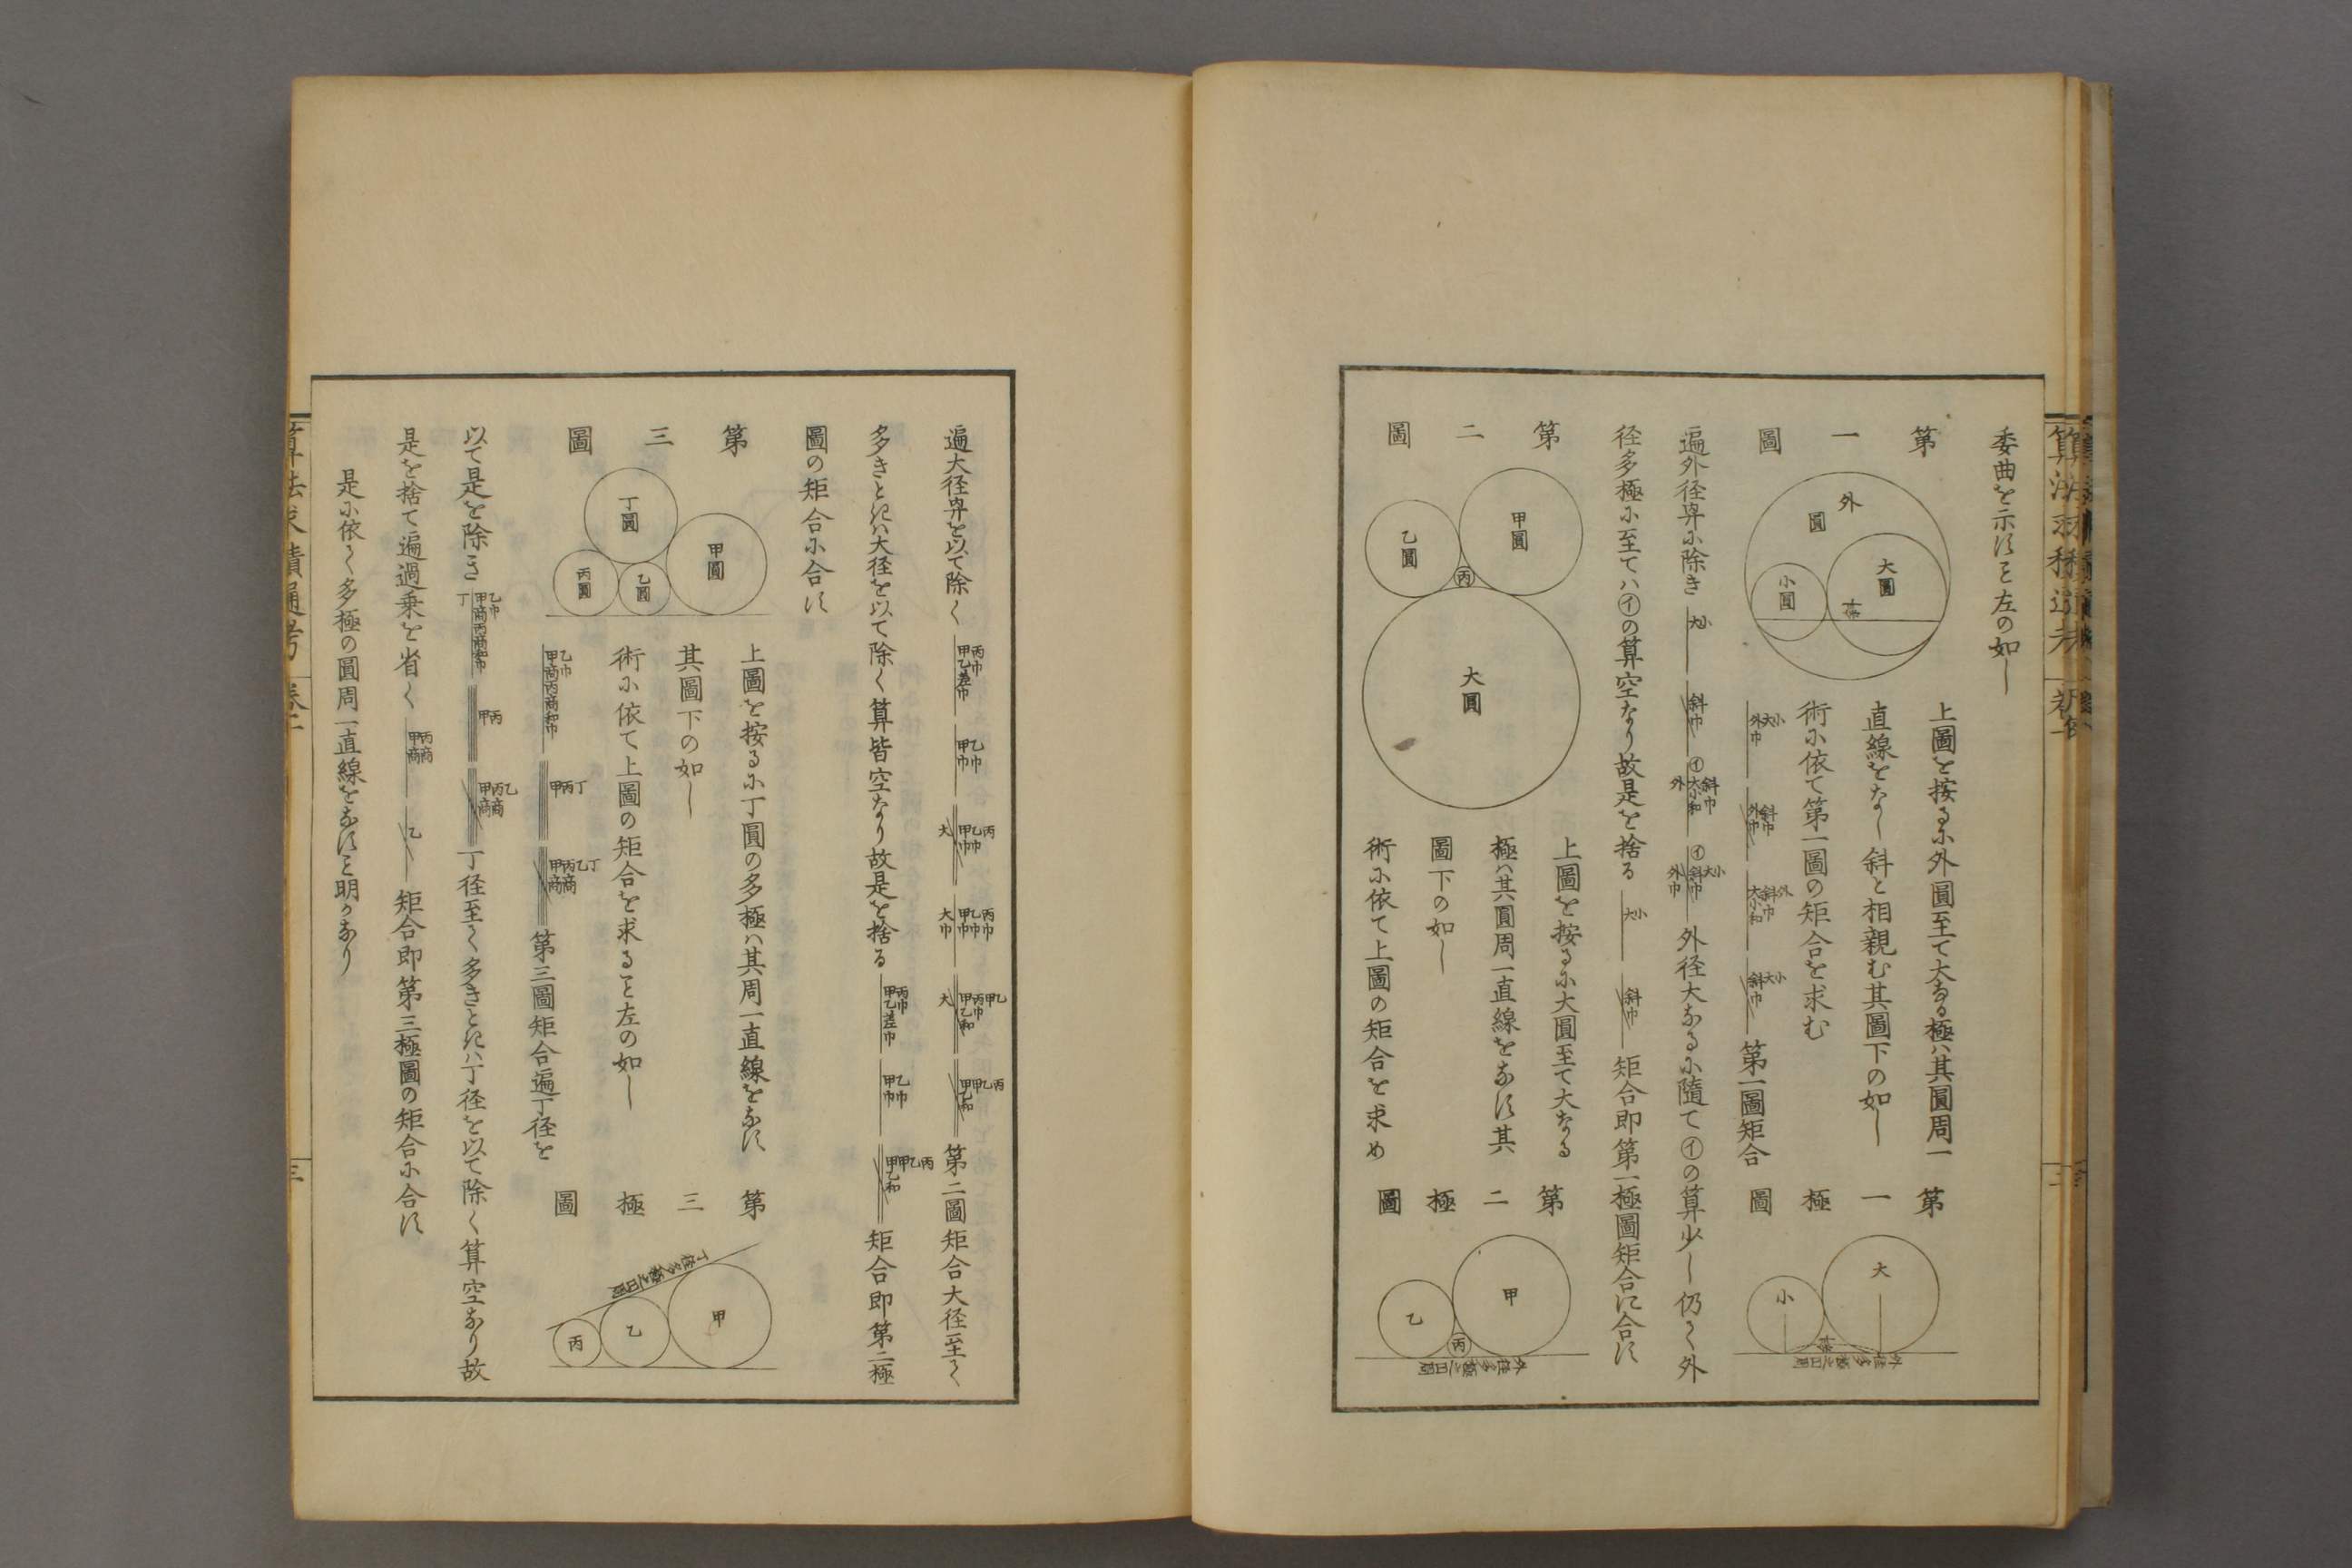 委曲を示すこと左の如し
第一圖
外圓
大圓
小圓
上圖を按るに外圓至て大なる極ハ其圓周一
直線をなし斜と相親む其圖下の如し
術に依て第一圖の矩合を求む
第一圖矩合
第一極圖
大
小
遍外径巾に除き
外径大なるに隨て㋑の算少し仍て外
径多極に至てハ㋑の算空なり故是を捨る
矩合即第一極圖矩合に合す
第二圖
甲圓
乙圓
丙
大圓
上圖を按るに大圓至て大なる
極ハ其圓周一直線をなす其
圖下の如し
術に依て上圖の矩合を求め
第二極圖
甲
乙
丙
遍大径巾を以て除く
第二圖矩合大径至て
多きときハ大径を以て除く算皆空なり故是を捨る
矩合即第二極
圖の矩合に合す
第三圖
丁圓
甲圓
丙圓
乙圓
上圖を按るに丁圓の多極ハ其周一直線をなす
其圖下の如し
術に依て上圖の矩合を求ること左の如し
第三圖矩合遍丁径を
第三極圖
甲
乙
丙
以て是を除き
丁径至て多きときハ丁径を以て除く算空なり故
是を捨て遍過乗を省く
矩合即第三極圖の矩合に合す
是に依て多極の圓周一直線をなすこと明かなり
算法求積通考
卷二
三